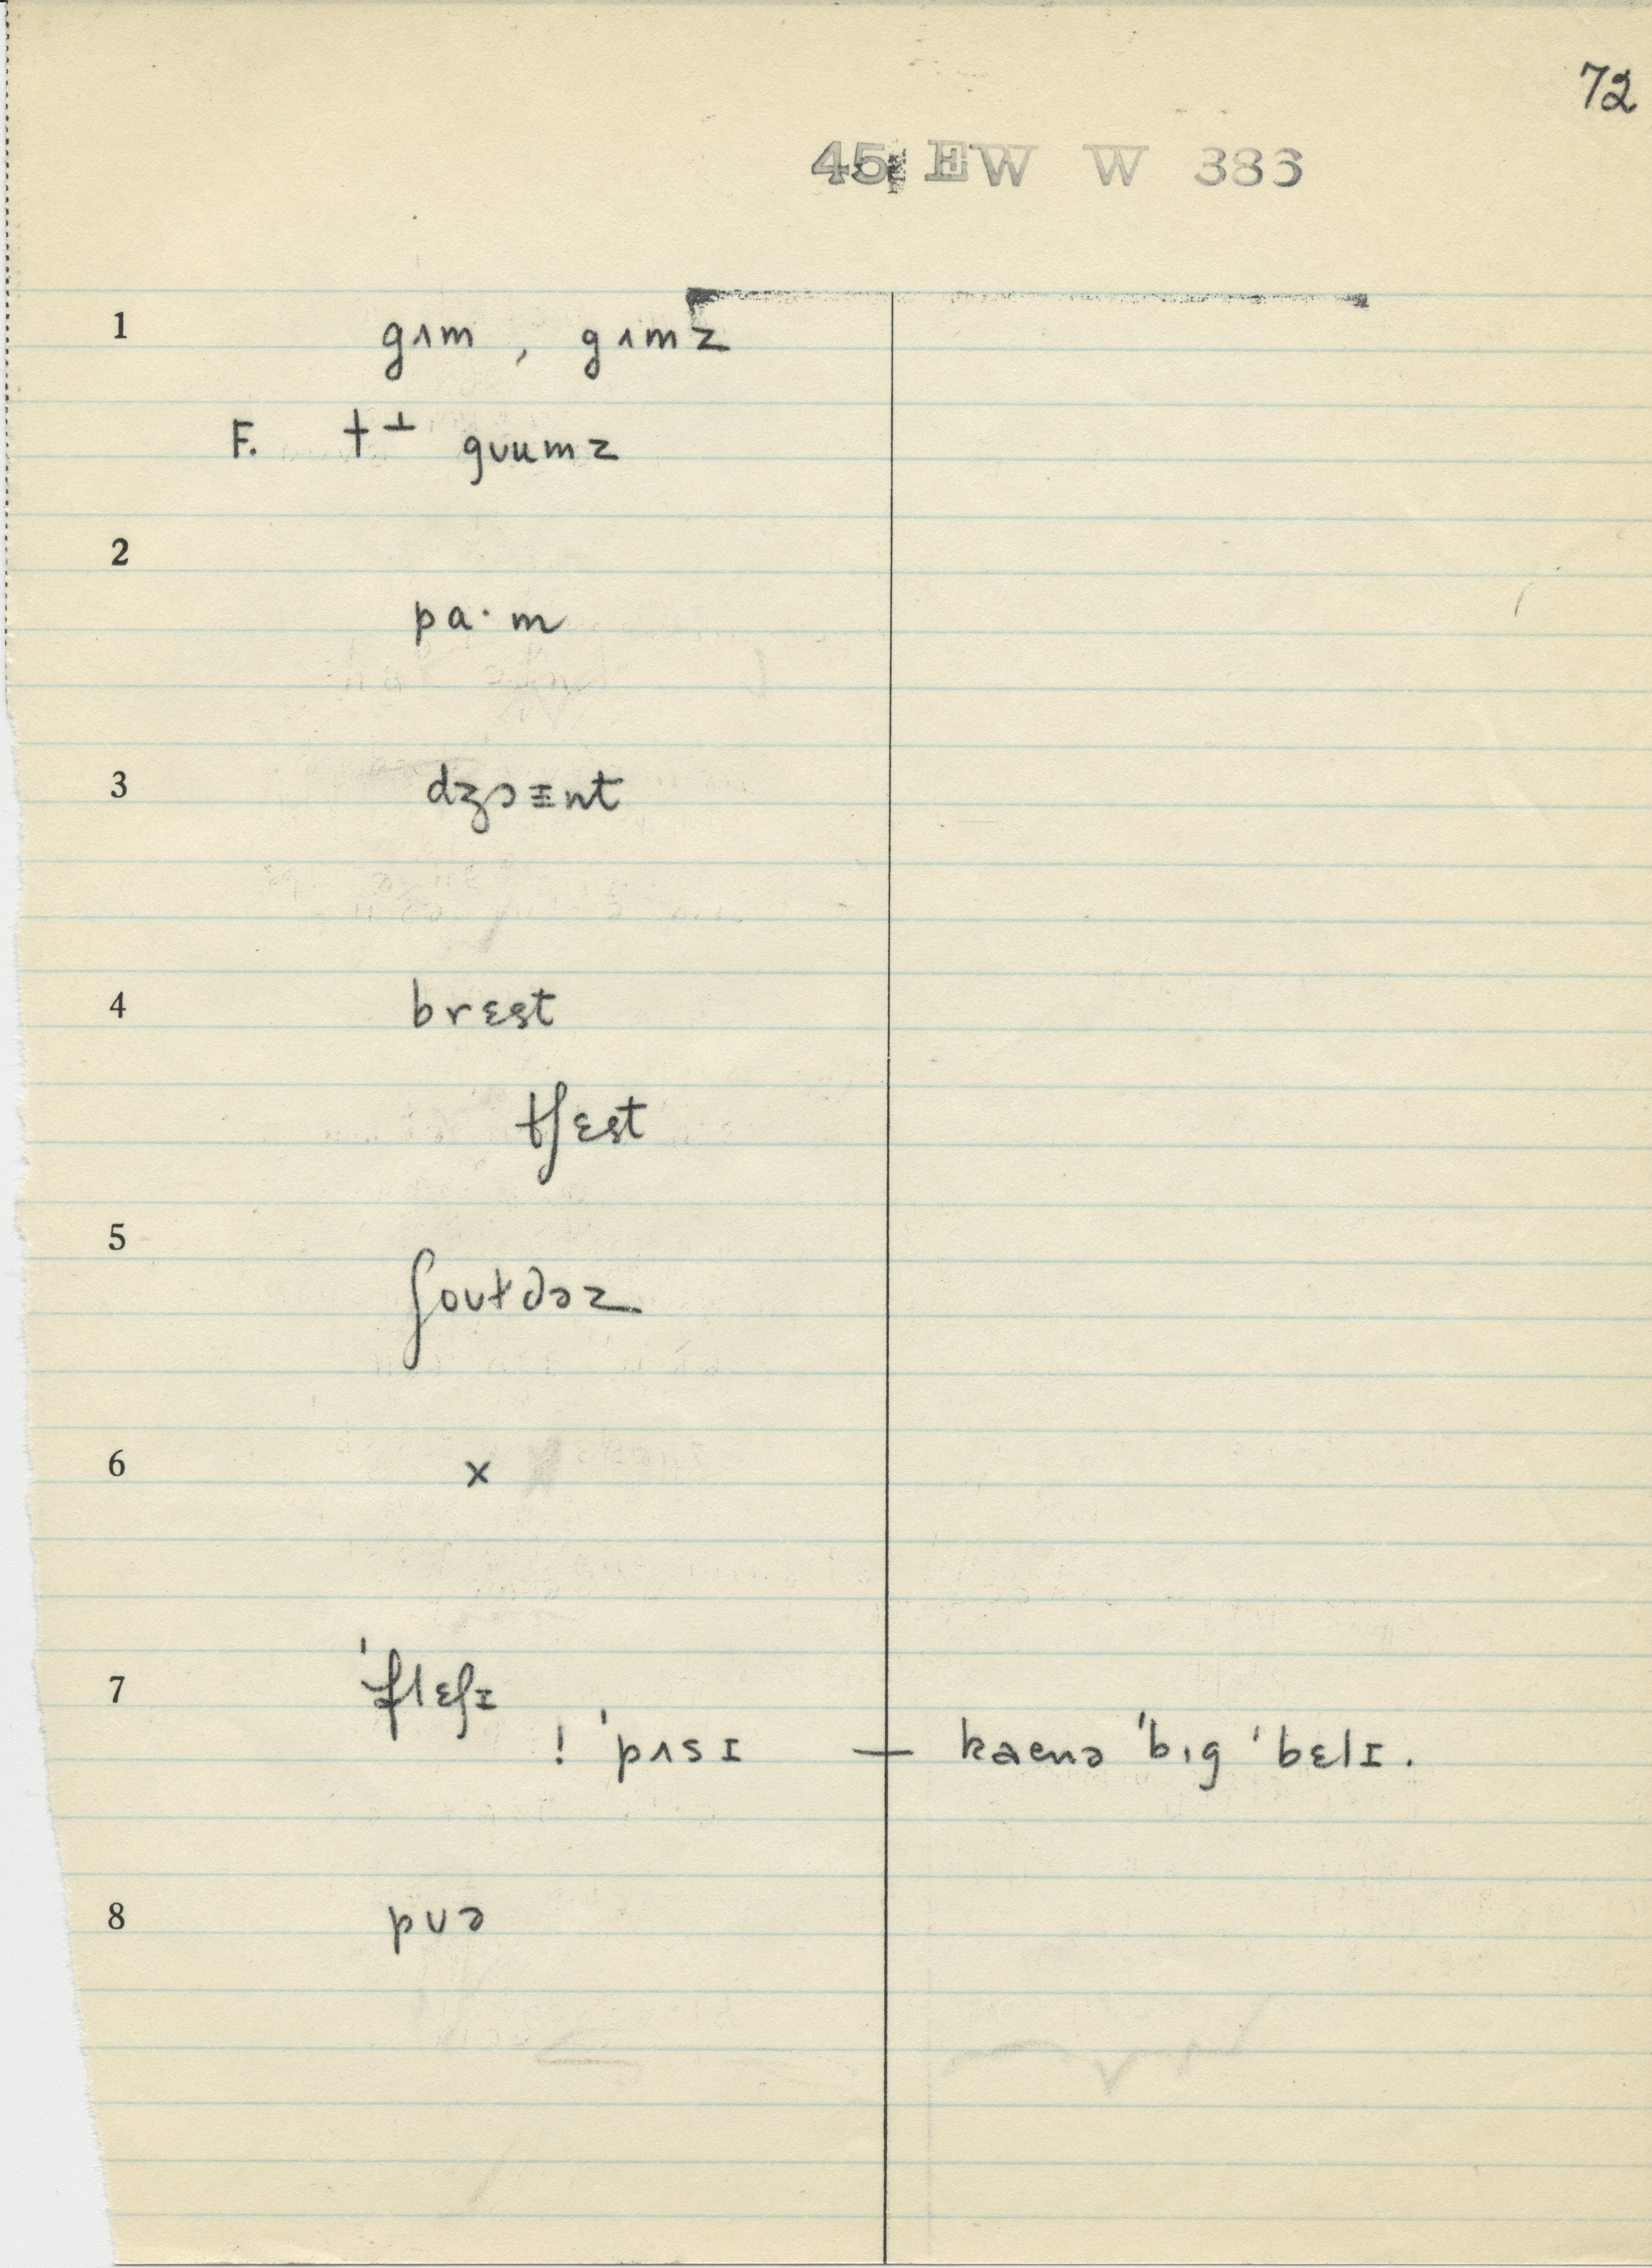 72
45 EW W 383
1 gʌm , gʌmz
F. †⊥ gʊumz
2
pa·m
3 dʒɔɪnt
4 brɛst
tʃɛst
5
ʃoʊɫdəz
6 x
7 'flɛʃɪ
! 'pʌsɪ — kaenə 'bɪg 'bɛlɪ.
8 pʊə